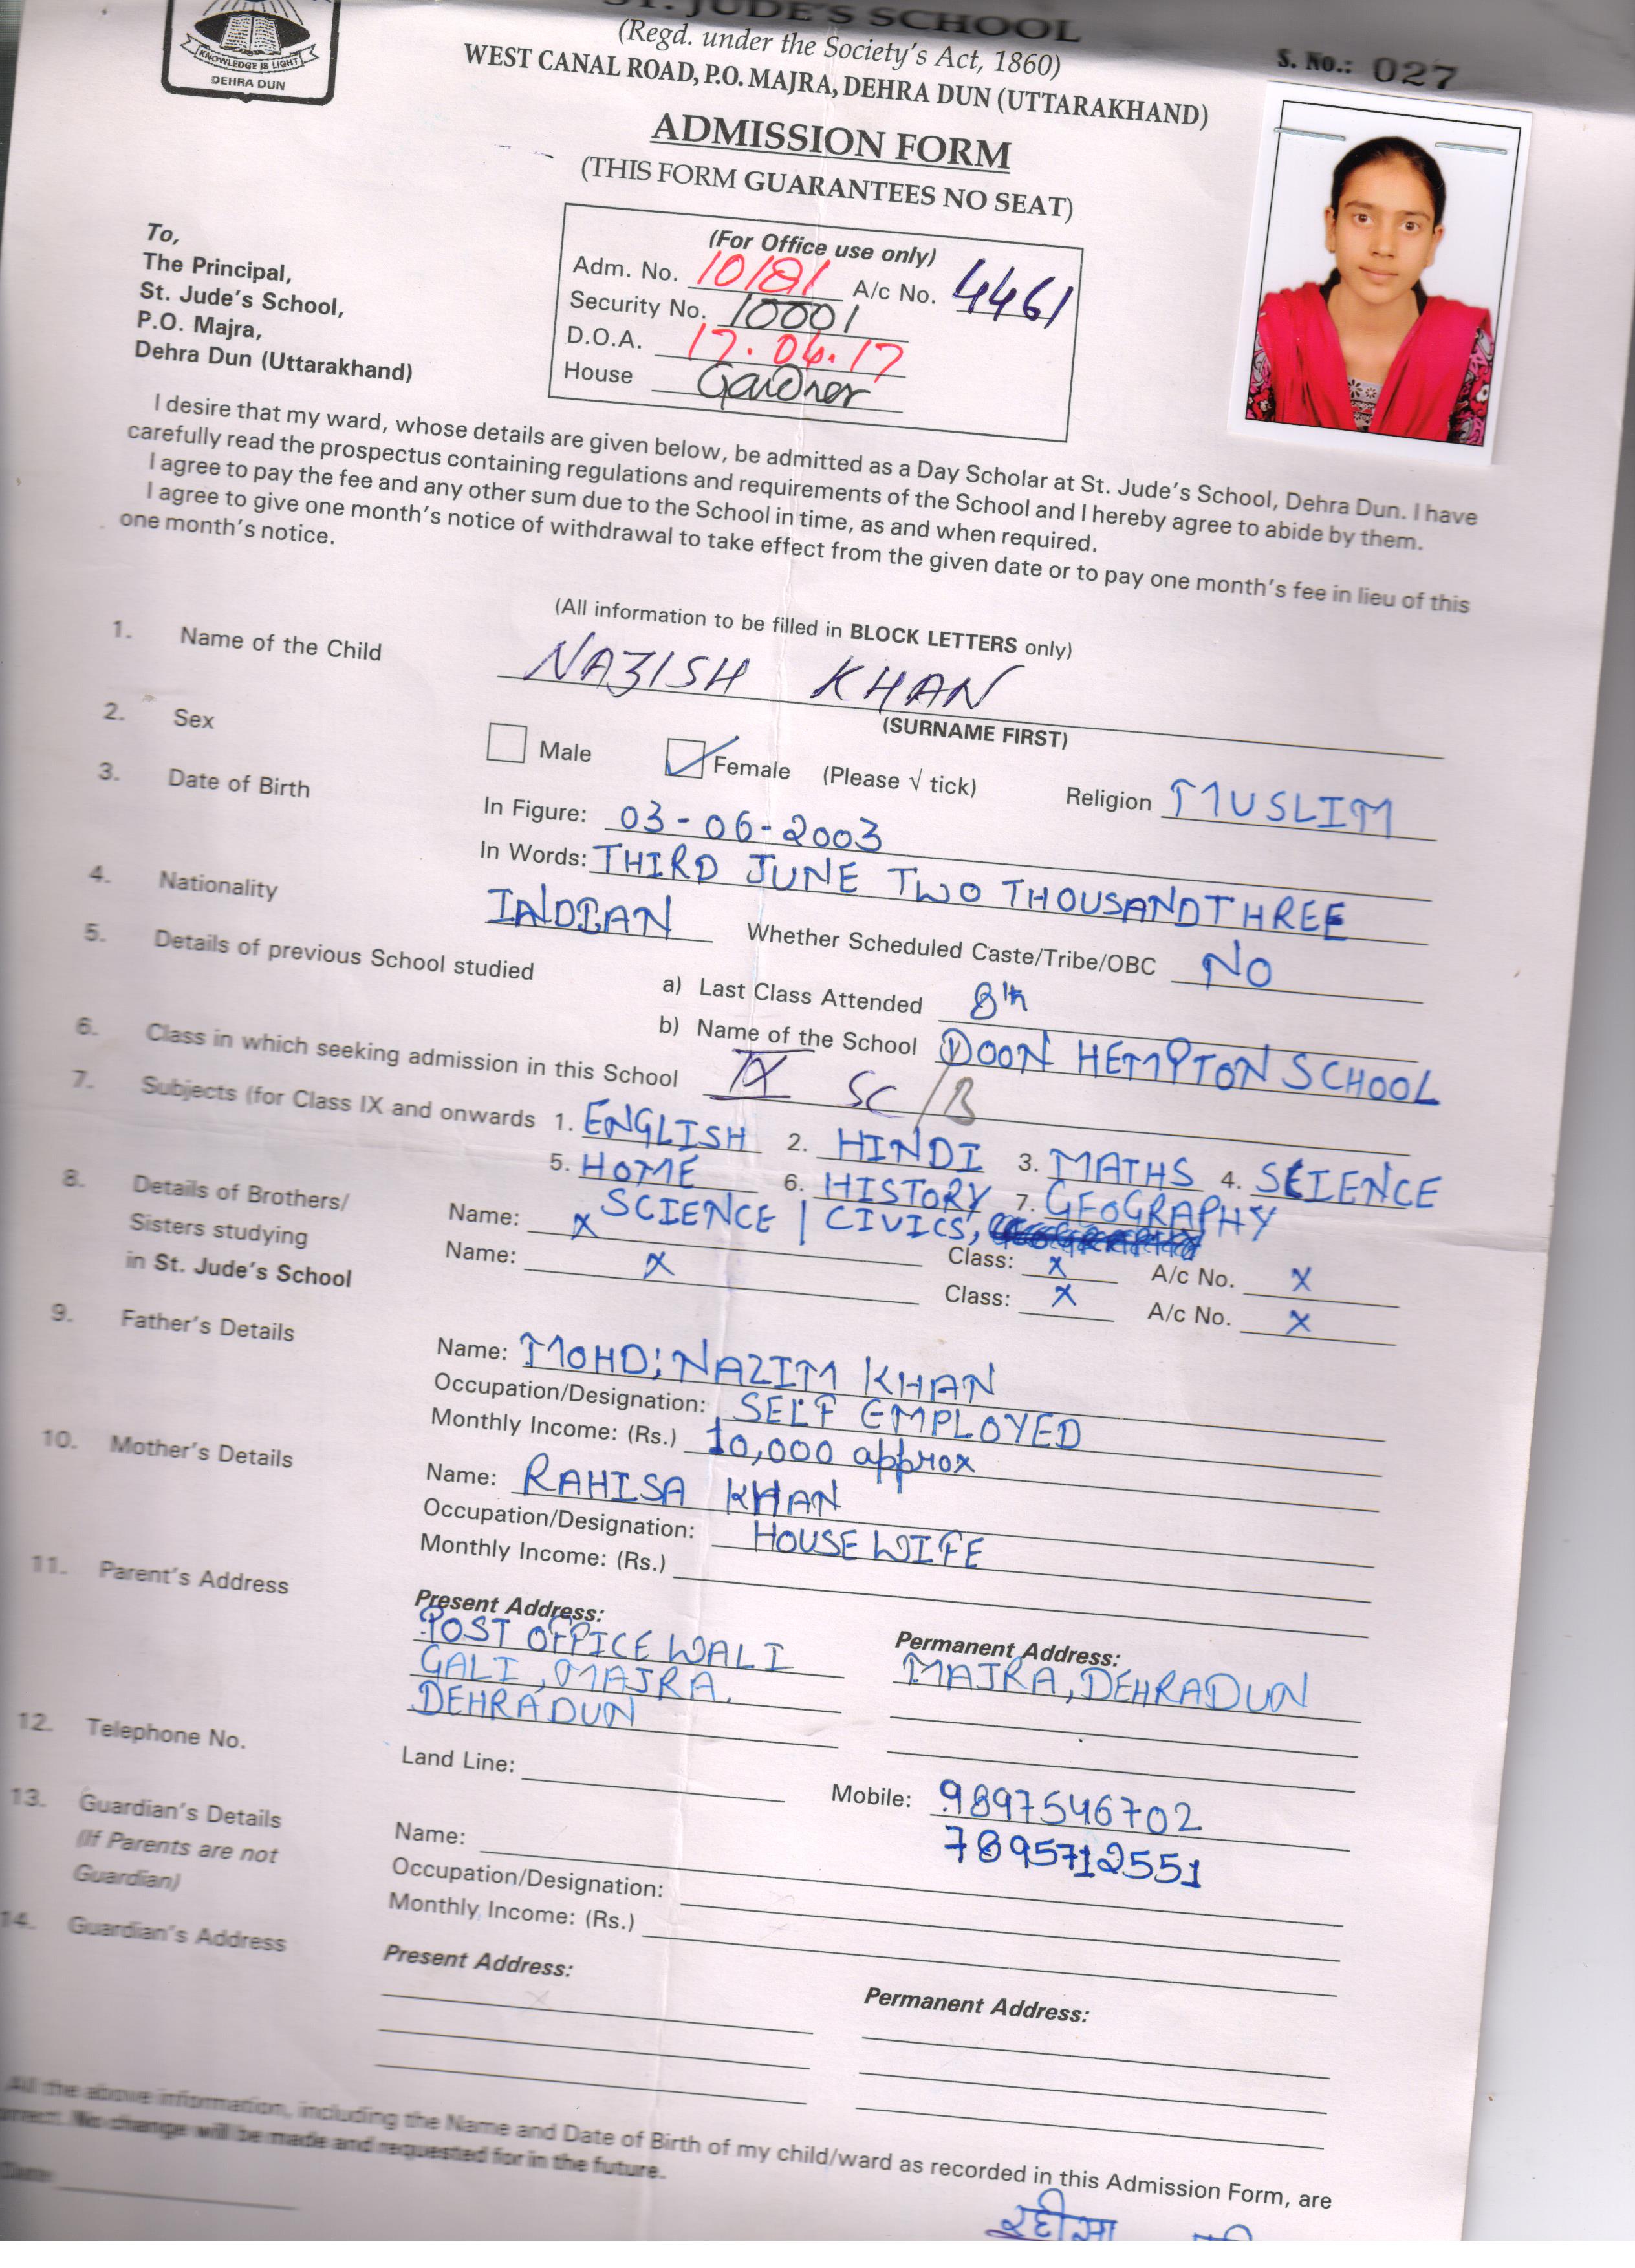 ST. JUDE'S SCHOOL
(Regd. under the Society's Act, 1860)
WEST CANAL ROAD, P.O. MAJRA, DEHRA DUN (UTTARAKHAND)
KNOWLEDGE IS LIGHT
DEHRA DUN
S. No.: 027
ADMISSION FORM
(THIS FORM GUARANTEES NO SEAT)
To,
The Principal,
St. Jude's School,
P.O. Majra,
Dehra Dun (Uttarakhand)
(For Office use only)
Adm. No. 10181 A/c No. 4461
Security No. 10001
D.O.A. 17.04.17
House Gardner
I desire that my ward, whose details are given below, be admitted as a Day Scholar at St. Jude's School, Dehra Dun. I have
carefully read the prospectus containing regulations and requirements of the School and I hereby agree to abide by them.
I agree to pay the fee and any other sum due to the School in time, as and when required.
I agree to give one month's notice of withdrawal to take effect from the given date or to pay one month's fee in lieu of this
one month's notice.
(All information to be filled in BLOCK LETTERS only)
1. Name of the Child NAZISH KHAN
(SURNAME FIRST)
2. Sex Male Female (Please √ tick) Religion MUSLIM
3. Date of Birth In Figure: 03-06-2003
In Words: THIRD JUNE TWO THOUSAND THREE
4. Nationality INDIAN Whether Scheduled Caste/Tribe/OBC NO
5. Details of previous School studied a) Last Class Attended 8th
b) Name of the School DOON HEMPTON SCHOOL
6. Class in which seeking admission in this School IX SC/B
7. Subjects (for Class IX and onwards 1. ENGLISH 2. HINDI 3. MATHS 4. SCIENCE
5. HOME SCIENCE 6. HISTORY CIVICS, 7. GEOGRAPHY
8. Details of Brothers/ Name: x Class: x A/c No. x
Sisters studying Name: x Class: x A/c No. x
in St. Jude's School
9. Father's Details Name: MOHD; NAZIM KHAN
Occupation/Designation: SELF EMPLOYED
Monthly Income: (Rs.) 10,000 approx
10. Mother's Details Name: RAHISA KHAN
Occupation/Designation: HOUSE WIFE
Monthly Income: (Rs.)
11. Parent's Address Present Address: Permanent Address:
POST OFFICE WALI MAJRA, DEHRADUN
GALI, MAJRA,
DEHRADUN
12. Telephone No. Land Line: Mobile: 9897546702
7895712551
13. Guardian's Details Name:
(If Parents are not Occupation/Designation:
Guardian) Monthly Income: (Rs.)
14. Guardian's Address Present Address: Permanent Address:
All the above information, including the Name and Date of Birth of my child/ward as recorded in this Admission Form, are
correct. No change will be made and requested for in the future.
Date:
रहीसा